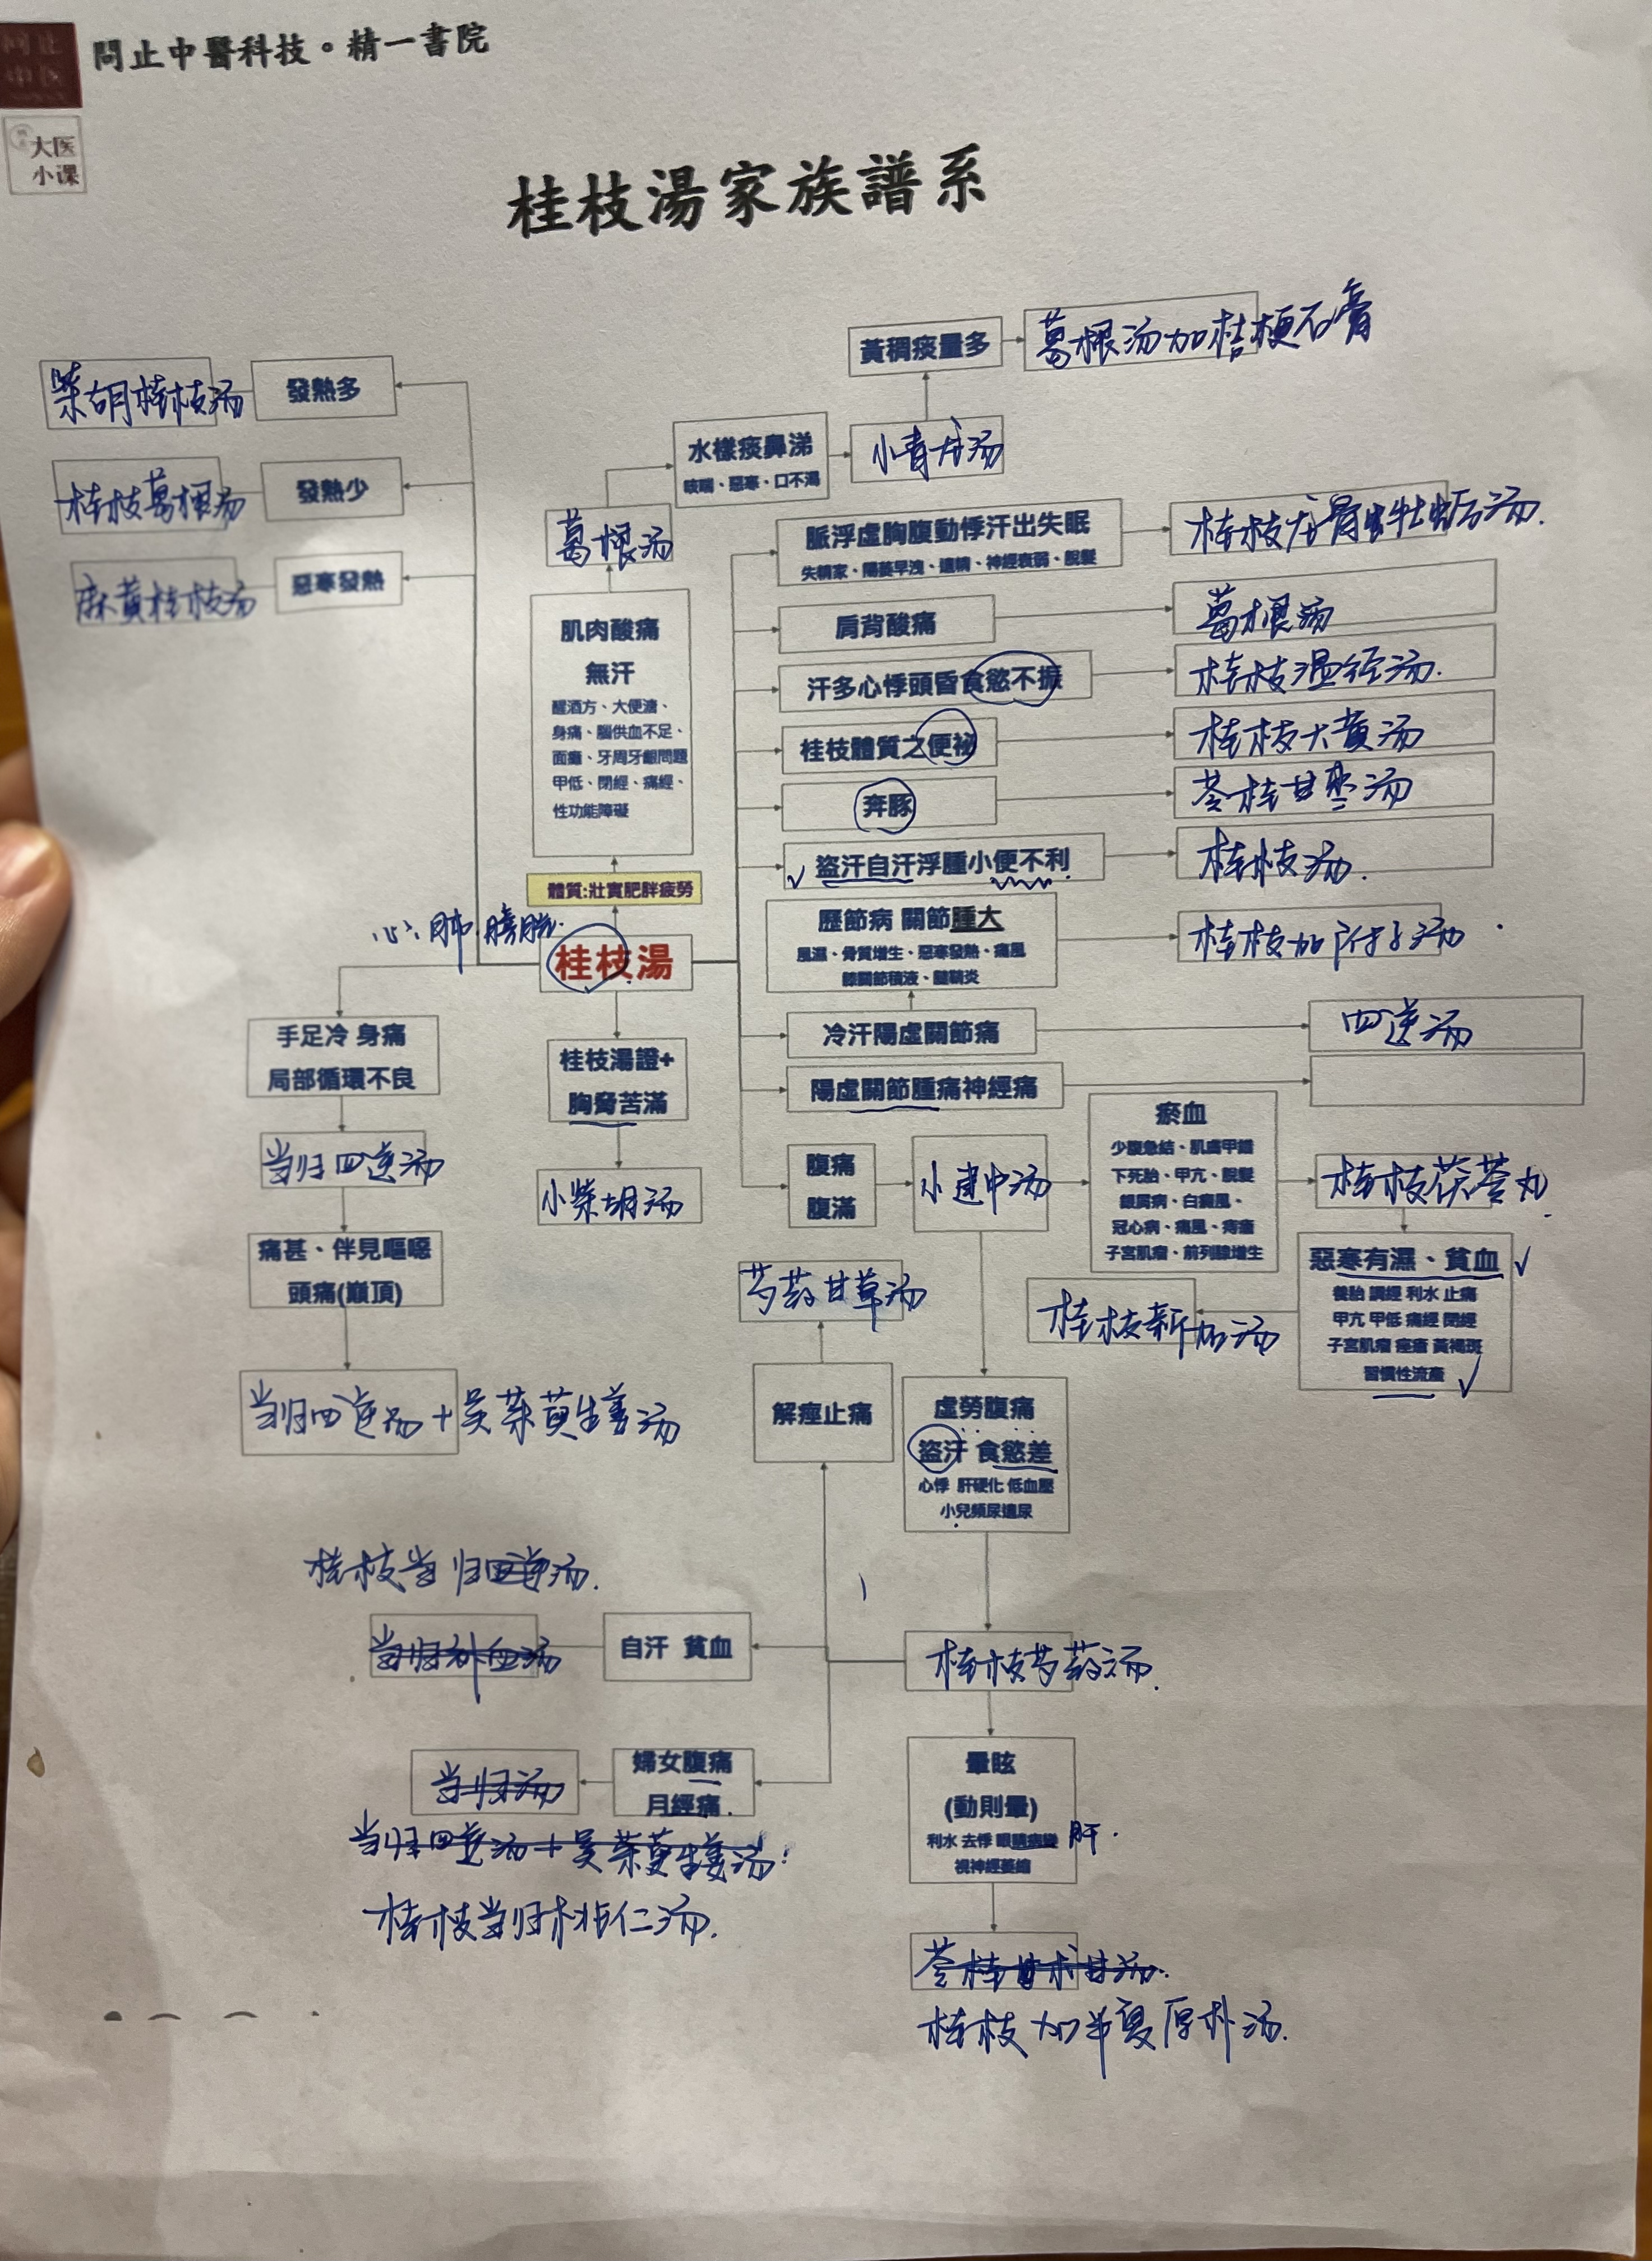 問止中醫科技。精一書院
大医
小课
桂枝湯家族譜系
黃稠痰量多
葛根汤加桔梗石膏
柴胡桂枝汤
發熱多
水樣痰鼻涕
咳喘、惡寒、口不渴
小青龙汤
桂枝葛根汤
發熱少
葛根汤
脈浮虛胸腹動悸汗出失眠
失精家、陽萎早洩、遺精、神經衰弱、脫髮
桂枝龙骨牡蛎汤.
麻黄桂枝汤
惡寒發熱
肌肉酸痛
無汗
醒酒方、大便溏、
身痛、腦供血不足、
面癱、牙周牙齦問題
甲低、閉經、痛經、
性功能障礙
肩背酸痛
葛根汤
汗多心悸頭昏食慾不振
桂枝温经汤.
桂枝體質之便祕
桂枝大黄汤
奔豚
苓桂甘枣汤
盜汗自汗浮腫小便不利
桂枝汤.
體質:壯實肥胖疲勞
心.肺.膀胱.
桂枝湯
歷節病 關節腫大
風濕、骨質增生、惡寒發熱、痛風
膝關節積液、腱鞘炎
桂枝加附子汤
手足冷 身痛
局部循環不良
桂枝湯證+
胸脅苦滿
冷汗陽虛關節痛
四逆汤
陽虛關節腫痛神經痛
当归四逆汤
小柴胡汤
腹痛
腹滿
小建中汤
瘀血
少腹急結、肌膚甲錯
下死胎、甲亢、脫髮
銀屑病、白癜風、
冠心病、痛風、痔瘡
子宮肌瘤、前列腺增生
桂枝茯苓丸.
痛甚、伴見嘔噁
頭痛(巔頂)
芍药甘草汤
桂枝新加汤
惡寒有濕、貧血
養胎 調經 利水 止痛
甲亢 甲低 痛經 閉經
子宮肌瘤 痤瘡 黃褐斑
習慣性流產
当归四逆汤+吴茱萸生姜汤
解痙止痛
虛勞腹痛
盜汗 食慾差
心悸 肝硬化 低血壓
小兒頻尿遺尿
桂枝当归四逆汤.
当归补血汤
自汗 貧血
桂枝芍药汤.
当归汤
婦女腹痛
月經痛
当归四逆汤+吴茱萸生姜汤.
桂枝当归桃仁汤.
暈眩
(動則暈)
利水 去悸 眼睛病變
肝.
視神經萎縮
苓桂甘术甘汤.
桂枝加半夏厚朴汤.